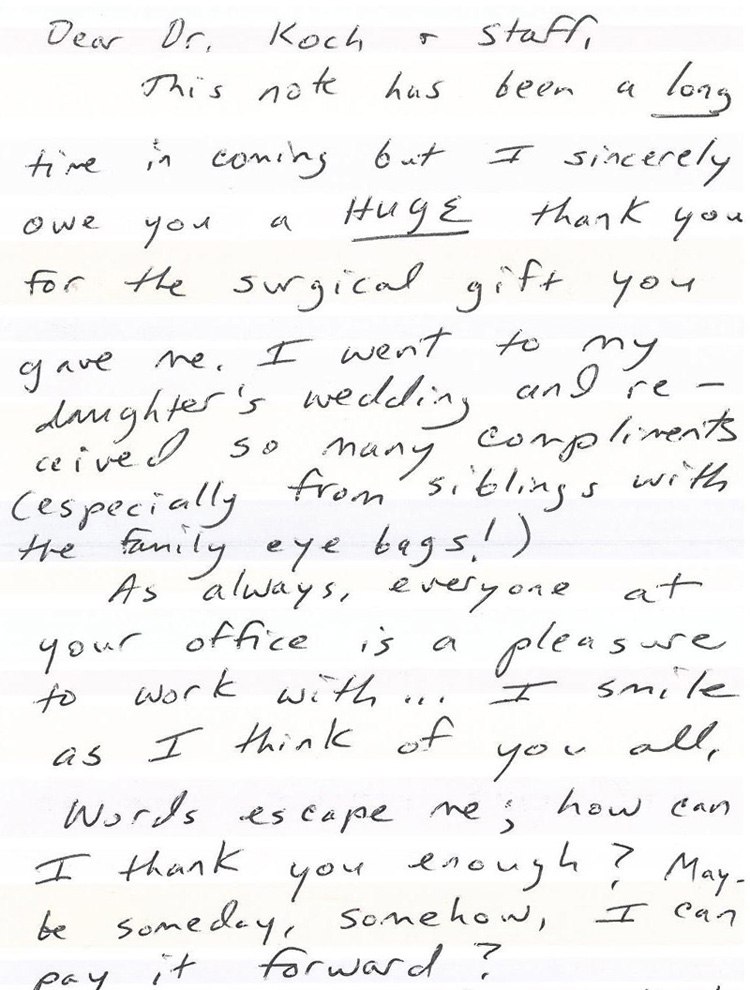 Dear Dr. Koch + staff,
This note has been a long
time in coming but I sincerely
owe you a HUGE thank you
for the surgical gift you
gave me. I went to my
daughter's wedding and re-
ceived so many compliments
(especially from siblings with
the family eye bags!)
As always, everyone at
your office is a pleasure
to work with... I smile
as I think of you all.
Words escape me; how can
I thank you enough? May-
be someday, somehow, I can
pay it forward?